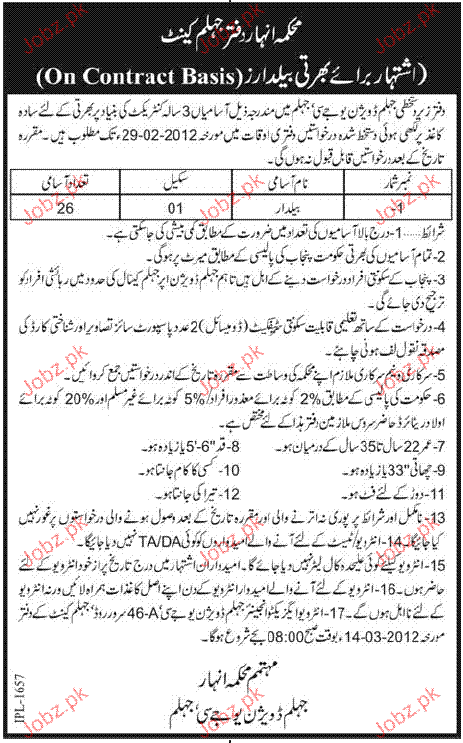 محکمہ انہار دفتر جہلم کینٹ
(اشتہار برائے بھرتی بیلدارز (On Contract Basis)
دفتر زیر دستخطی جہلم ڈویژن یو جے سی، جہلم میں مندرجہ ذیل آسامیاں 3 سالہ کنٹریکٹ کی بنیاد پر بھرتی کے لئے سادہ
کاغذ پر لکھی ہوئی دستخط شدہ درخواستیں دفتری اوقات میں مورخہ 29-02-2012ء تک مطلوب ہیں۔ مقررہ
تاریخ کے بعد درخواستیں قابل قبول نہ ہوں گی۔
نمبر شمار نام آسامی سکیل تعداد آسامی
-1 بیلدار 01 26
شرائط.....1- درج بالا آسامیوں کی تعداد میں ضرورت کے مطابق کمی بیشی کی جا سکتی ہے۔
2- تمام آسامیوں کی بھرتی حکومت پنجاب کی پالیسی کے مطابق میرٹ پر ہو گی۔
3- پنجاب کے سکونتی افراد درخواست دینے کے اہل ہیں تاہم جہلم ڈویژن اپر جہلم کینال کی حدود میں رہائشی افراد کو
ترجیح دی جائے گی۔
4- درخواست کے ساتھ تعلیمی قابلیت سکونتی سرٹیفکیٹ (ڈومیسائل) 2 عدد پاسپورٹ سائز تصاویر اور شناختی کارڈ کی
مصدقہ نقول لف ہونی چاہئے۔
5- سرکاری و نیم سرکاری ملازم اپنے محکمہ کی وساطت سے مقررہ تاریخ کے اندر درخواستیں جمع کروائیں۔
6- حکومت کی پالیسی کے مطابق 2% کوٹہ برائے معذور افراد/ 5% کوٹہ برائے غیر مسلم اور 20% کوٹہ برائے
اولاد ریٹائرڈ/حاضر سروس ملازمین دفتر ہذا کے لئے مختص ہے۔
7- عمر 22 سال تا 35 سال کے درمیان ہو۔ 8- قد 5'-6" یا زیادہ ہو۔
9- چھاتی 33" یا زیادہ ہو۔ 10- کسی کا کام جانتا ہو۔
11- دوڑ کے لئے فٹ ہو۔ 12- تیراکی جانتا ہو۔
13- نامکمل اور شرائط پر پوری نہ اترنے والی اور مقررہ تاریخ کے بعد وصول ہونے والی درخواستوں پر غور نہیں
کیا جائیگا۔ 14- انٹرویو/ٹیسٹ کے لئے آنے والے امیدواروں کو کوئی TA/DA نہیں دیا جائیگا۔
15- انٹرویو کیلئے کوئی علیحدہ کال لیٹر نہیں دیا جائے گا۔ امیدواران اشتہار میں درج تاریخ پر از خود انٹرویو کے لئے
حاضر ہوں۔ 16- انٹرویو کے لئے آنے والے امیدوار انٹرویو کے دن اپنے اصل کاغذات ہمراہ لائیں ورنہ انٹرویو
کے لئے نا اہل ہوں گے۔ 17- انٹرویو ایگزیکٹو انجینئر جہلم ڈویژن یو جے سی، 46-A سرور روڈ، جہلم کینٹ کے دفتر
مورخہ 14-03-2012ء بوقت صبح 08:00 بجے شروع ہو گا۔
مہتمم محکمہ انہار
جہلم ڈویژن یو جے سی، جہلم
IPL-1657
Jobz.pk